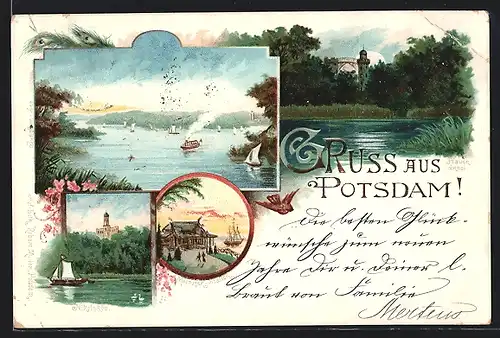 GRUSS AUS
POTSDAM!
Die besten Glück-
wünsche zum neuen
Jahre Dir u. Deiner l.
Braut von Familie
Mertens